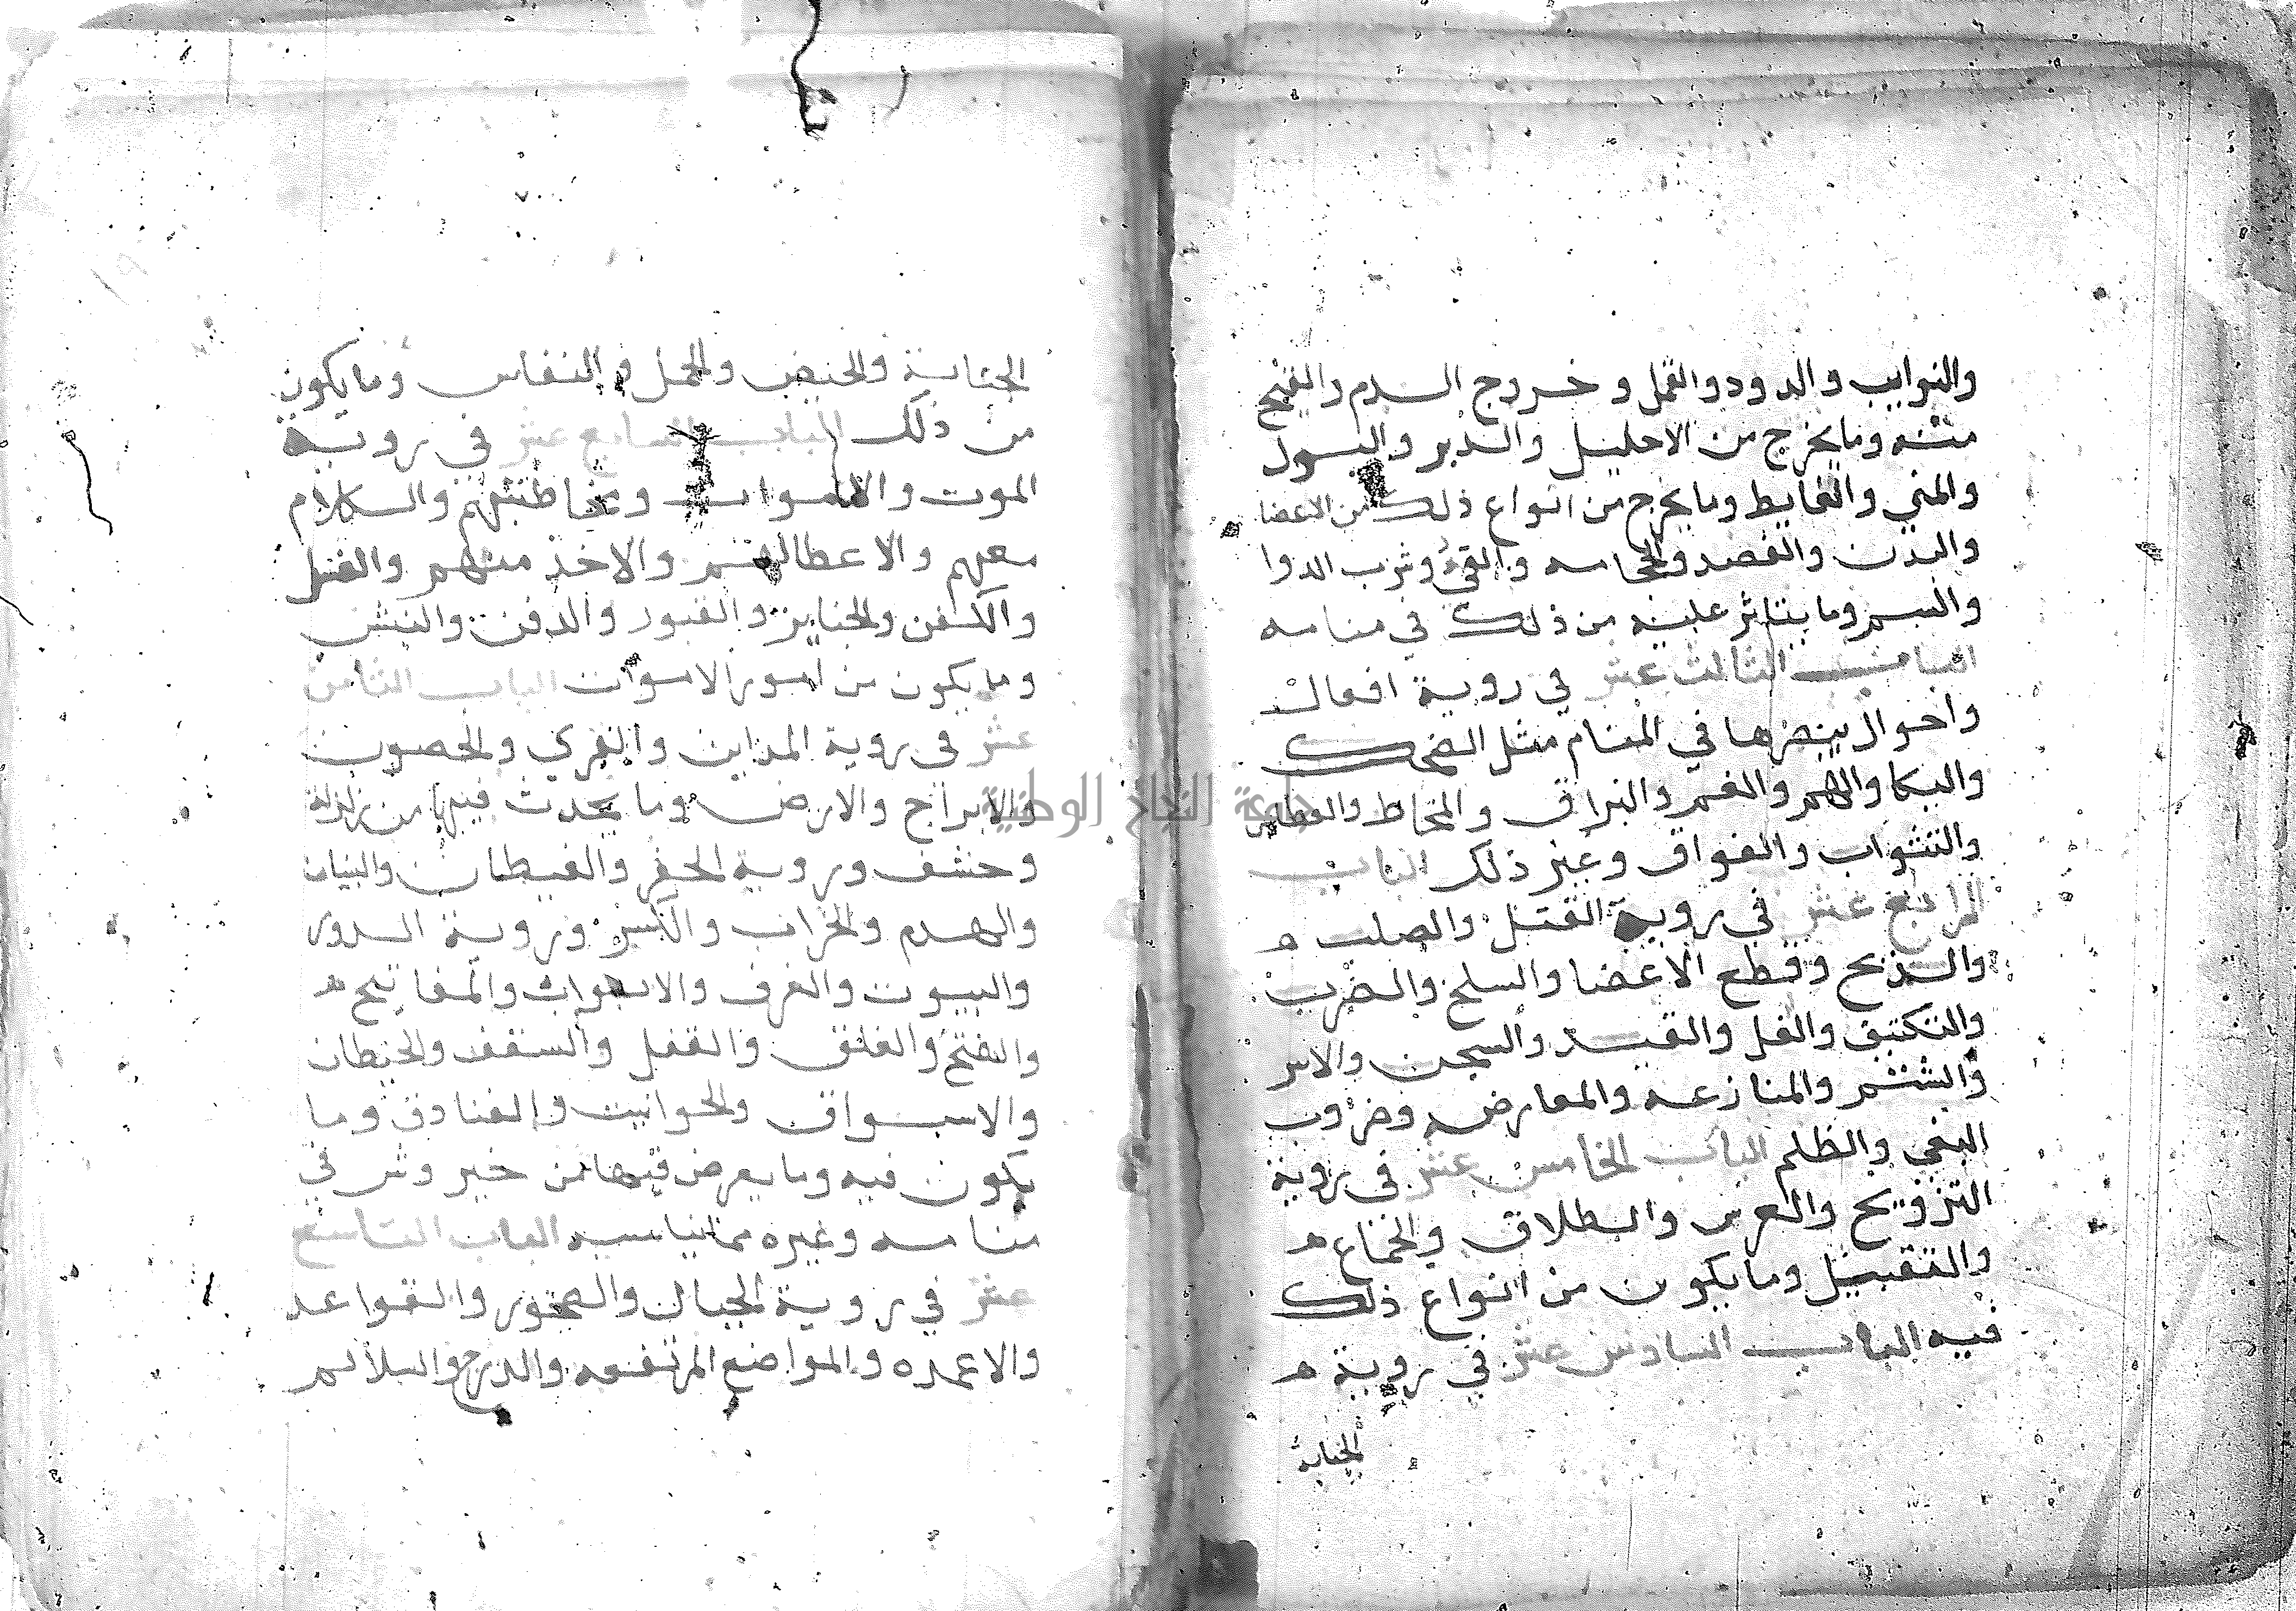 والتوابيب والدود والقمل و خروج الدم والقيح
منه وما يخرج من الاحليل والدبر والبول
والمني والغايط وما يخرج من انواع ذلك من الاعضا
والبدن والفصد والحجامه والقئ وشرب الدوا
والسم وما يتاثر عليه من ذلك في منامه
الباب الثالث عشر في روية افعال
واحوال يبصرها في المنام مثل الضحك
والبكا والهم والغم والبزاق والمخاط والعطاس
والتثواب والفواق وغير ذلك الباب
الرابع عشر في روية القتل والصلب
والذبح وقطع الاعضا والسلخ والضرب
والتكتيف والغل والقيد والسجن والاسر
والشتم والمنازعه والمعارضه وضروب
البغي والظلم الباب الخامس عشر في روية
التزويج والعرس والطلاق والجماع
والتقبيل وما يكون من انواع ذلك
فيه الباب السادس عشر في روية
الجنابة
الجنابة والحيض والحمل والنفاس وما يكون
من ذلك الباب السابع عشر في روية
الموت والاموات ومخاطبتهم والكلام
معهم والاعطا لهم والاخذ منهم والغسل
والكفن والجنايز والقبور والدفن والنبش
وما يكون من امور الاموات الباب الثامن
عشر في روية المداين والقري والحصون
والابراج والارض وما يحدث فيها من زلزلة
وخسف وروية الحفر والغيطان والبنيان
والهدم والخراب والكسر وروية الدور
والبيوت والغرف والابواب والمفاتيح
والفتح والغلق والقفل والسقف والحيطان
والاسواق والحوانيت والفنادق وما
يكون فيه وما يعرض فيها من خير وشر في
منامه وغيره مما يناسبه الباب التاسع
عشر في روية الجبال والصخور والقواعد
والاعمده والمواضع المرتفعه والدرج والسلالم
جامعة النجاح الوطنية